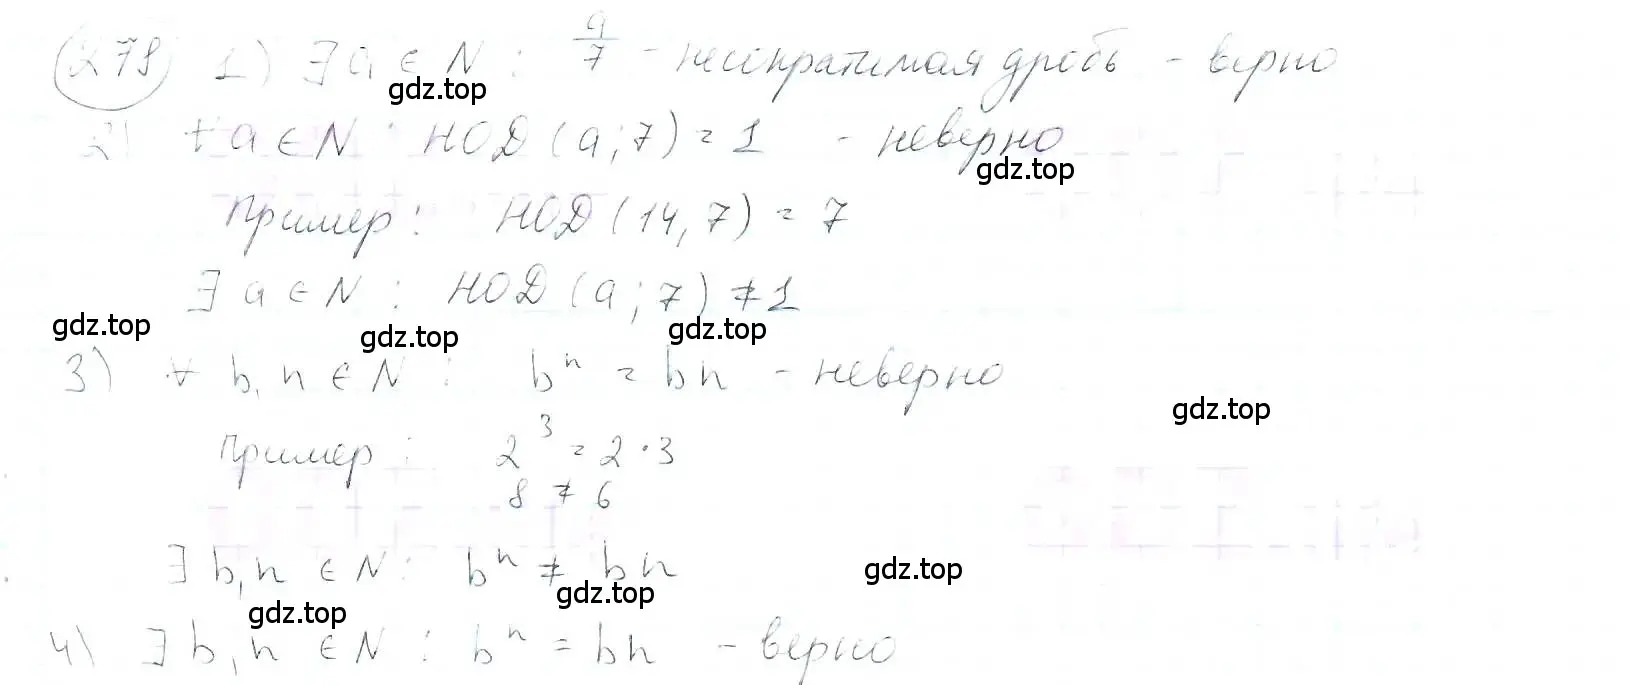 278 1) ∃ a ∈ N : a/7 - несократимая дробь - верно
gdz.top
2) ∀ a ∈ N : НОД (a; 7) = 1 - неверно
gdz.top
Пример: НОД (14, 7) = 7
∃ a ∈ N : НОД (a; 7) ≠ 1
gdz.top gdz.top gdz.top
3) ∀ b, n ∈ N : bⁿ = bn - неверно
gdz.top
Пример: 2³ = 2 · 3
8 ≠ 6
∃ b, n ∈ N : bⁿ ≠ bn
gdz.top gdz.top gdz.top
4) ∃ b, n ∈ N : bⁿ = bn - верно